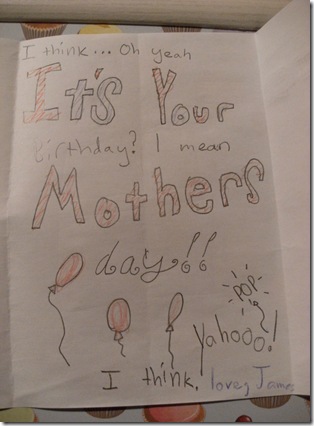 I think... Oh yeah
It's Your
Birthday? I mean
Mothers
day!!
POP
Yahooo!
I think, love, James